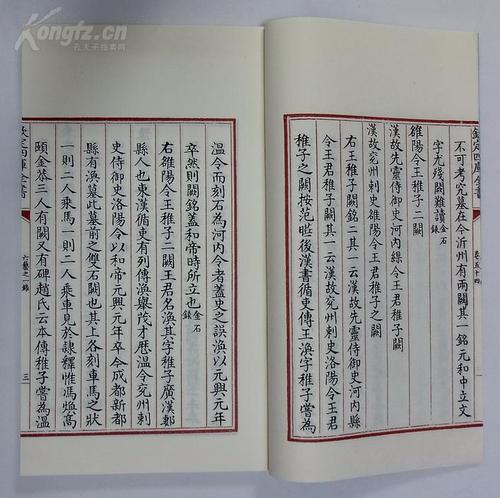 Kongfz.cn
孔夫子拍卖网
欽定四庫全書
不可考究墓在今沂州有兩闕其一銘元和中立文
字尤殘闕難讀金石錄
雒陽令王稚子二闕
漢故先靈侍御史河內縣令王君稚子闕
漢故兖州刺史洛陽令王君稚子之闕
右王稚子闕銘二其一云漢故先靈侍御史河內縣
令王君稚子闕其一云漢故兖州刺史洛陽令王君
稚子之闕按范曄後漢書循吏傳王渙字稚子嘗為
溫令而刻石為河內令者蓋史之誤渙以元興元年
卒然則闕銘蓋和帝時所立也金石錄
右雒陽令王稚子二闕王君名渙其字稚子廣漢郪
縣人也東漢循吏有列傳渙舉茂才歴溫令兖州刺
史侍御史洛陽令以和帝元興元年卒今成都新都
縣有渙墓此墓前之雙石闕也其上各刻車馬之狀
一則二人乘馬一則二人乘車見於隸釋惟馮煥高
頤金恭三人有闕又有碑趙氏云本傳稚子嘗為溫
欽定四庫全書
六藝之一錄
三